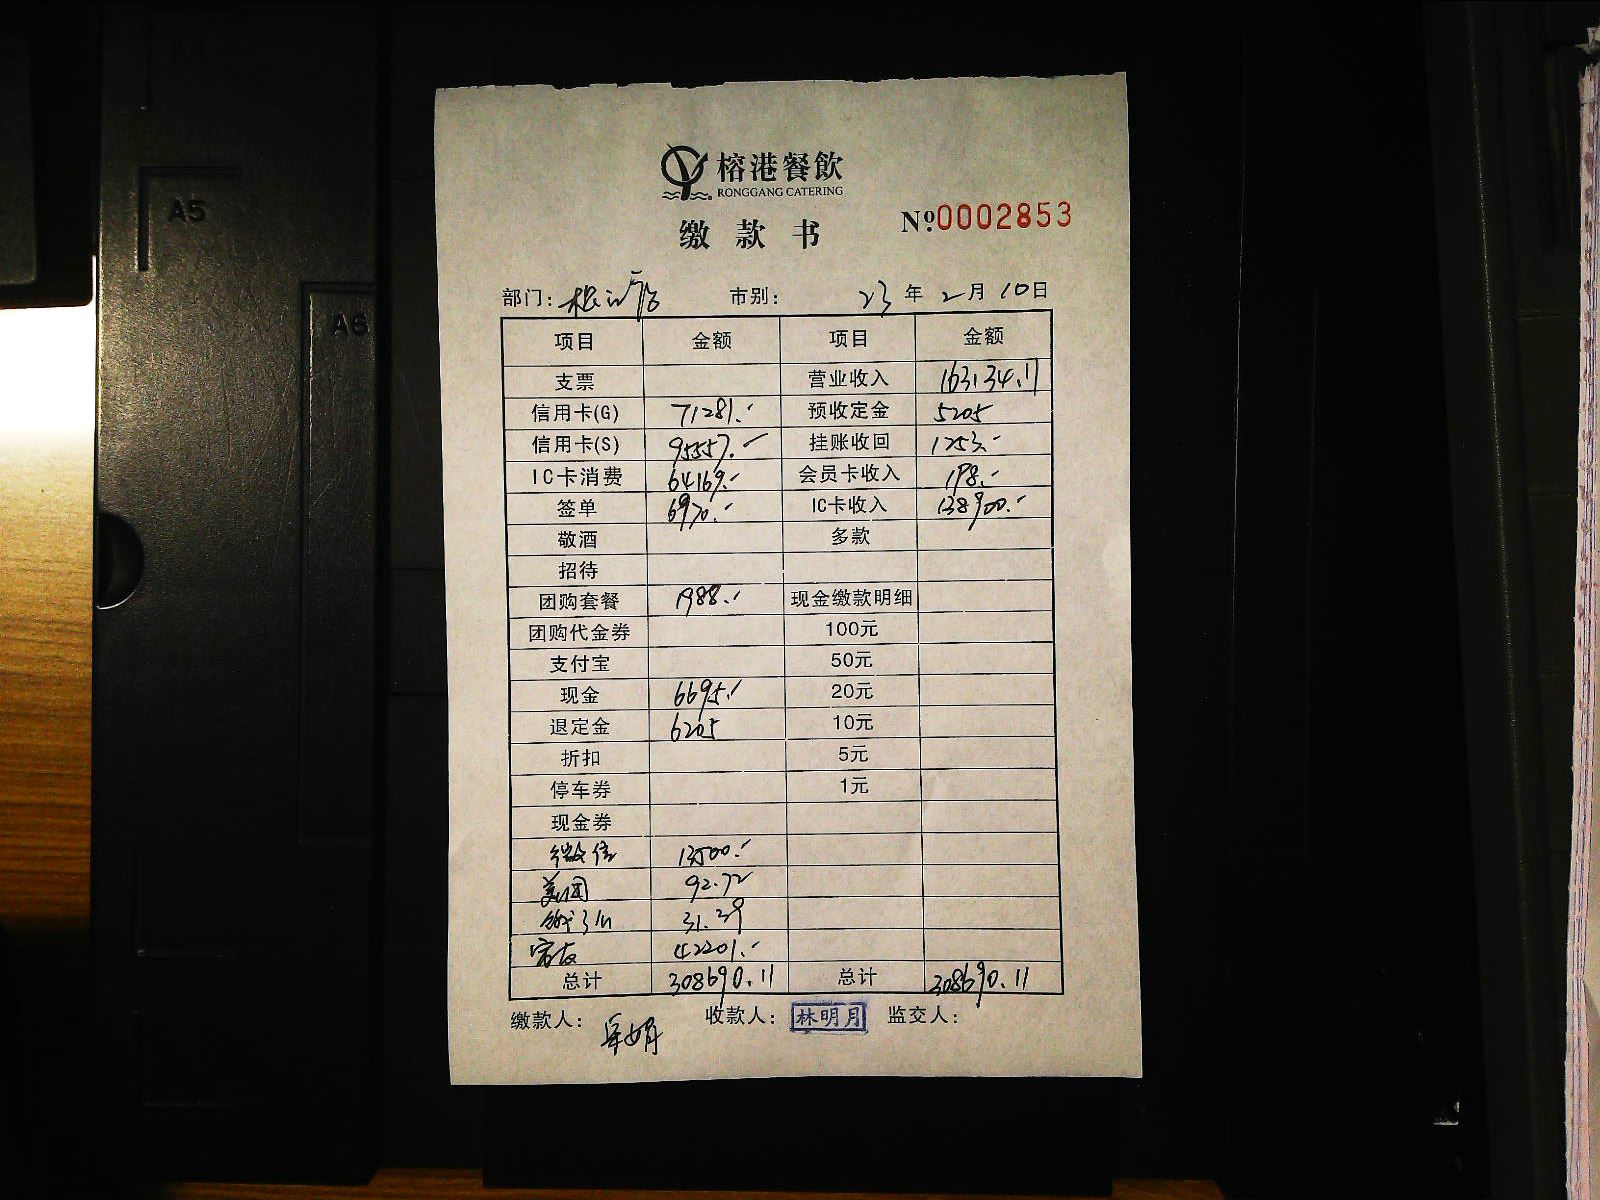 A5
A6
榕港餐飲
RONGGANG CATERING
缴款书
№0002853
部门: 市别: 23年2月10日
项目 金额 项目 金额
支票 营业收入 163134.11
信用卡(G) 71281.- 预收定金 5205
信用卡(S) 95557.- 挂账收回 1253.-
IC卡消费 64169.- 会员卡收入 198.-
签单 6970.- IC卡收入 138900.-
敬酒 多款
招待
团购套餐 1988.- 现金缴款明细
团购代金券 100元
支付宝 50元
现金 6695.- 20元
退定金 6205 10元
折扣 5元
停车券 1元
现金券
微信 13500.-
美团 92.72
31.39
42201.-
总计 308690.11 总计 308690.11
缴款人: 收款人: 林明月 监交人: